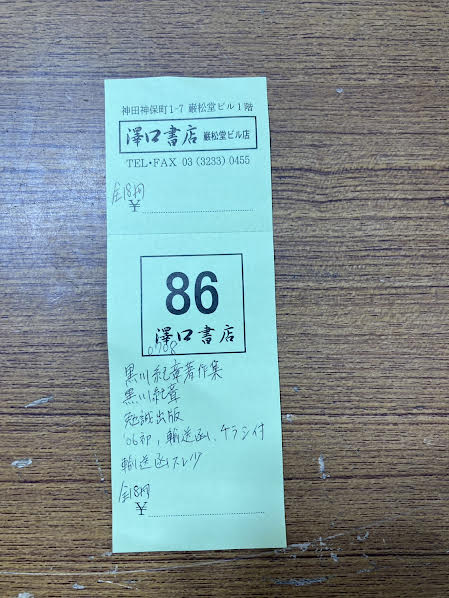 神田神保町1-7 巌松堂ビル1階
澤口書店 巌松堂ビル店
TEL・FAX 03 (3233) 0455
全18冊
¥
86
澤口書店
0708
黒川紀章著作集
黒川紀章
勉誠出版
'06初, 輸送函、チラシ付
輸送函スレ少
全18冊
¥